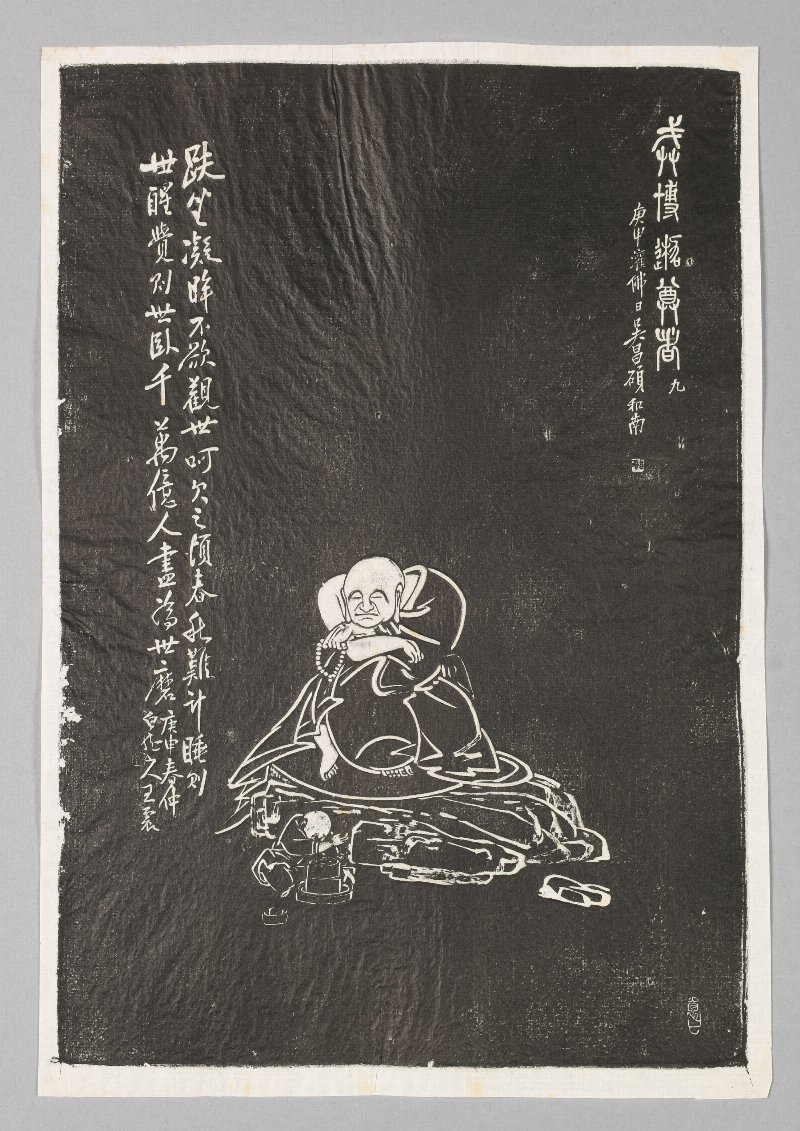 戍博迦尊者 九
庚申灌佛日吳昌碩和南
趺坐凝眸不欲觀世呵欠之頃春秋難計睡則
世醒覺則世臥千萬億人盡為世磨
庚申春仲
白龍山人王震